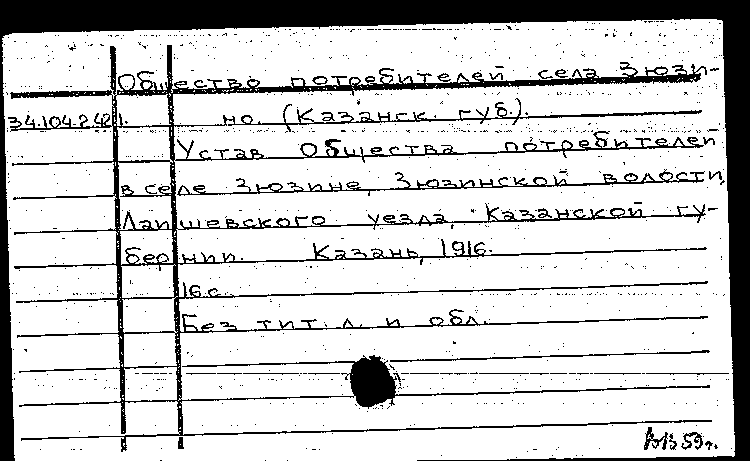 Общество потребителей села Зюзи-
34.104.242 1. но. (Казанск. губ.).
Устав Общества потребителей
в селе Зюзине, Зюзинской волости,
Лаишевского уезда, Казанской гу-
бернии. Казань, 1916.
16 с.
Без тит. л. и обл.
59 г.